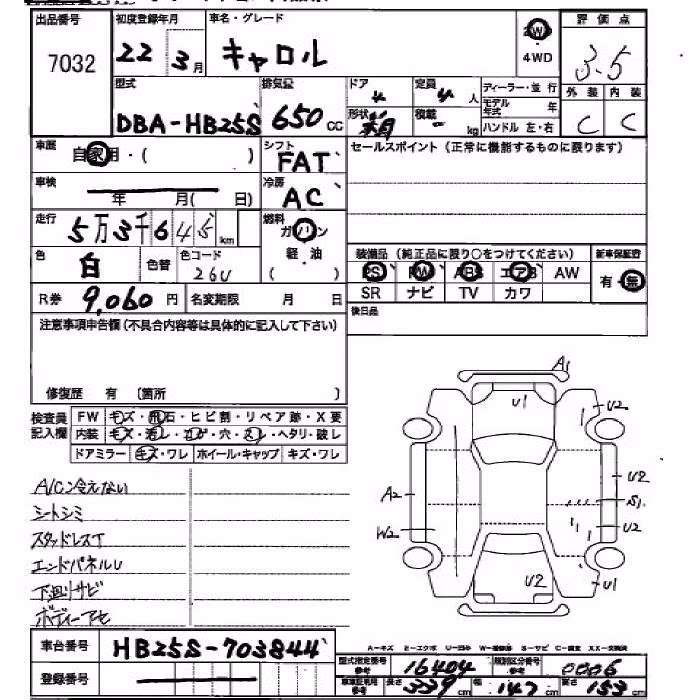 出品番号 初度登録年月 車名・グレード 2WD 評価点
7032 22年3月 キャロル 4WD 3.5
型式 排気量 ドア 定員 ディーラー・並行 外装 内装
DBA-HB25S 650cc 4 4人 モデル年式 年 C C
形状 箱 積載 kg ハンドル 左・右
車歴 自家用・( ) シフト FAT セールスポイント(正常に機能するものに限ります)
車検 年 月( 日) 冷房 AC
走行 5万3千645km 燃料 ガソリン
軽・油
( )
色 白 色替 色コード 26U
装備品(純正品に限り○をつけてください) 新車保証書
PS PW ABS エアB AW 有・無
SR ナビ TV カワ
R券 9,060円 名変期限 月 日
後日品
注意事項申告欄(不具合内容等は具体的に記入して下さい)
修復歴 有 〔箇所 〕
検査員記入欄 FW キズ・飛石・ヒビ割・リペア跡・X要
内装 キズ・汚レ・コゲ・穴・スレ・ヘタリ・破レ
ドアミラー キズ・ワレ ホイール・キャップ キズ・ワレ
A/C冷えない
シートシミ
スタッドレスT
エンドパネルU
下廻りサビ
ボディーアセ
A1
U1 U2
U2
A2 S1
W2 U2
U2 U1
A-キズ E-エクボ U-凹み W-補修跡 S-サビ C-腐食 XX-交換済
車台番号 HB25S-703844
登録番号
型式指定番号 参考 16404 類別区分番号 参考 0006
車車証明用 参考 長さ 339cm 幅 147cm 高さ 153cm